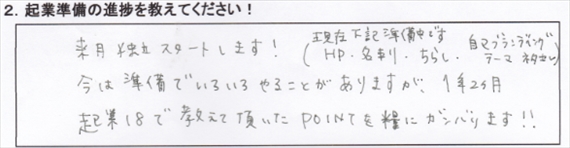 2. 起業準備の進捗を教えてください！
来月 独立スタートします！
(現在下記準備中です
HP・名刺・ちらし・自己ブランディング
テーマ
今は準備でいろいろやることがありますが、1年2ヶ月
起業18で教えて頂いたPOINTを糧にガンバります!!